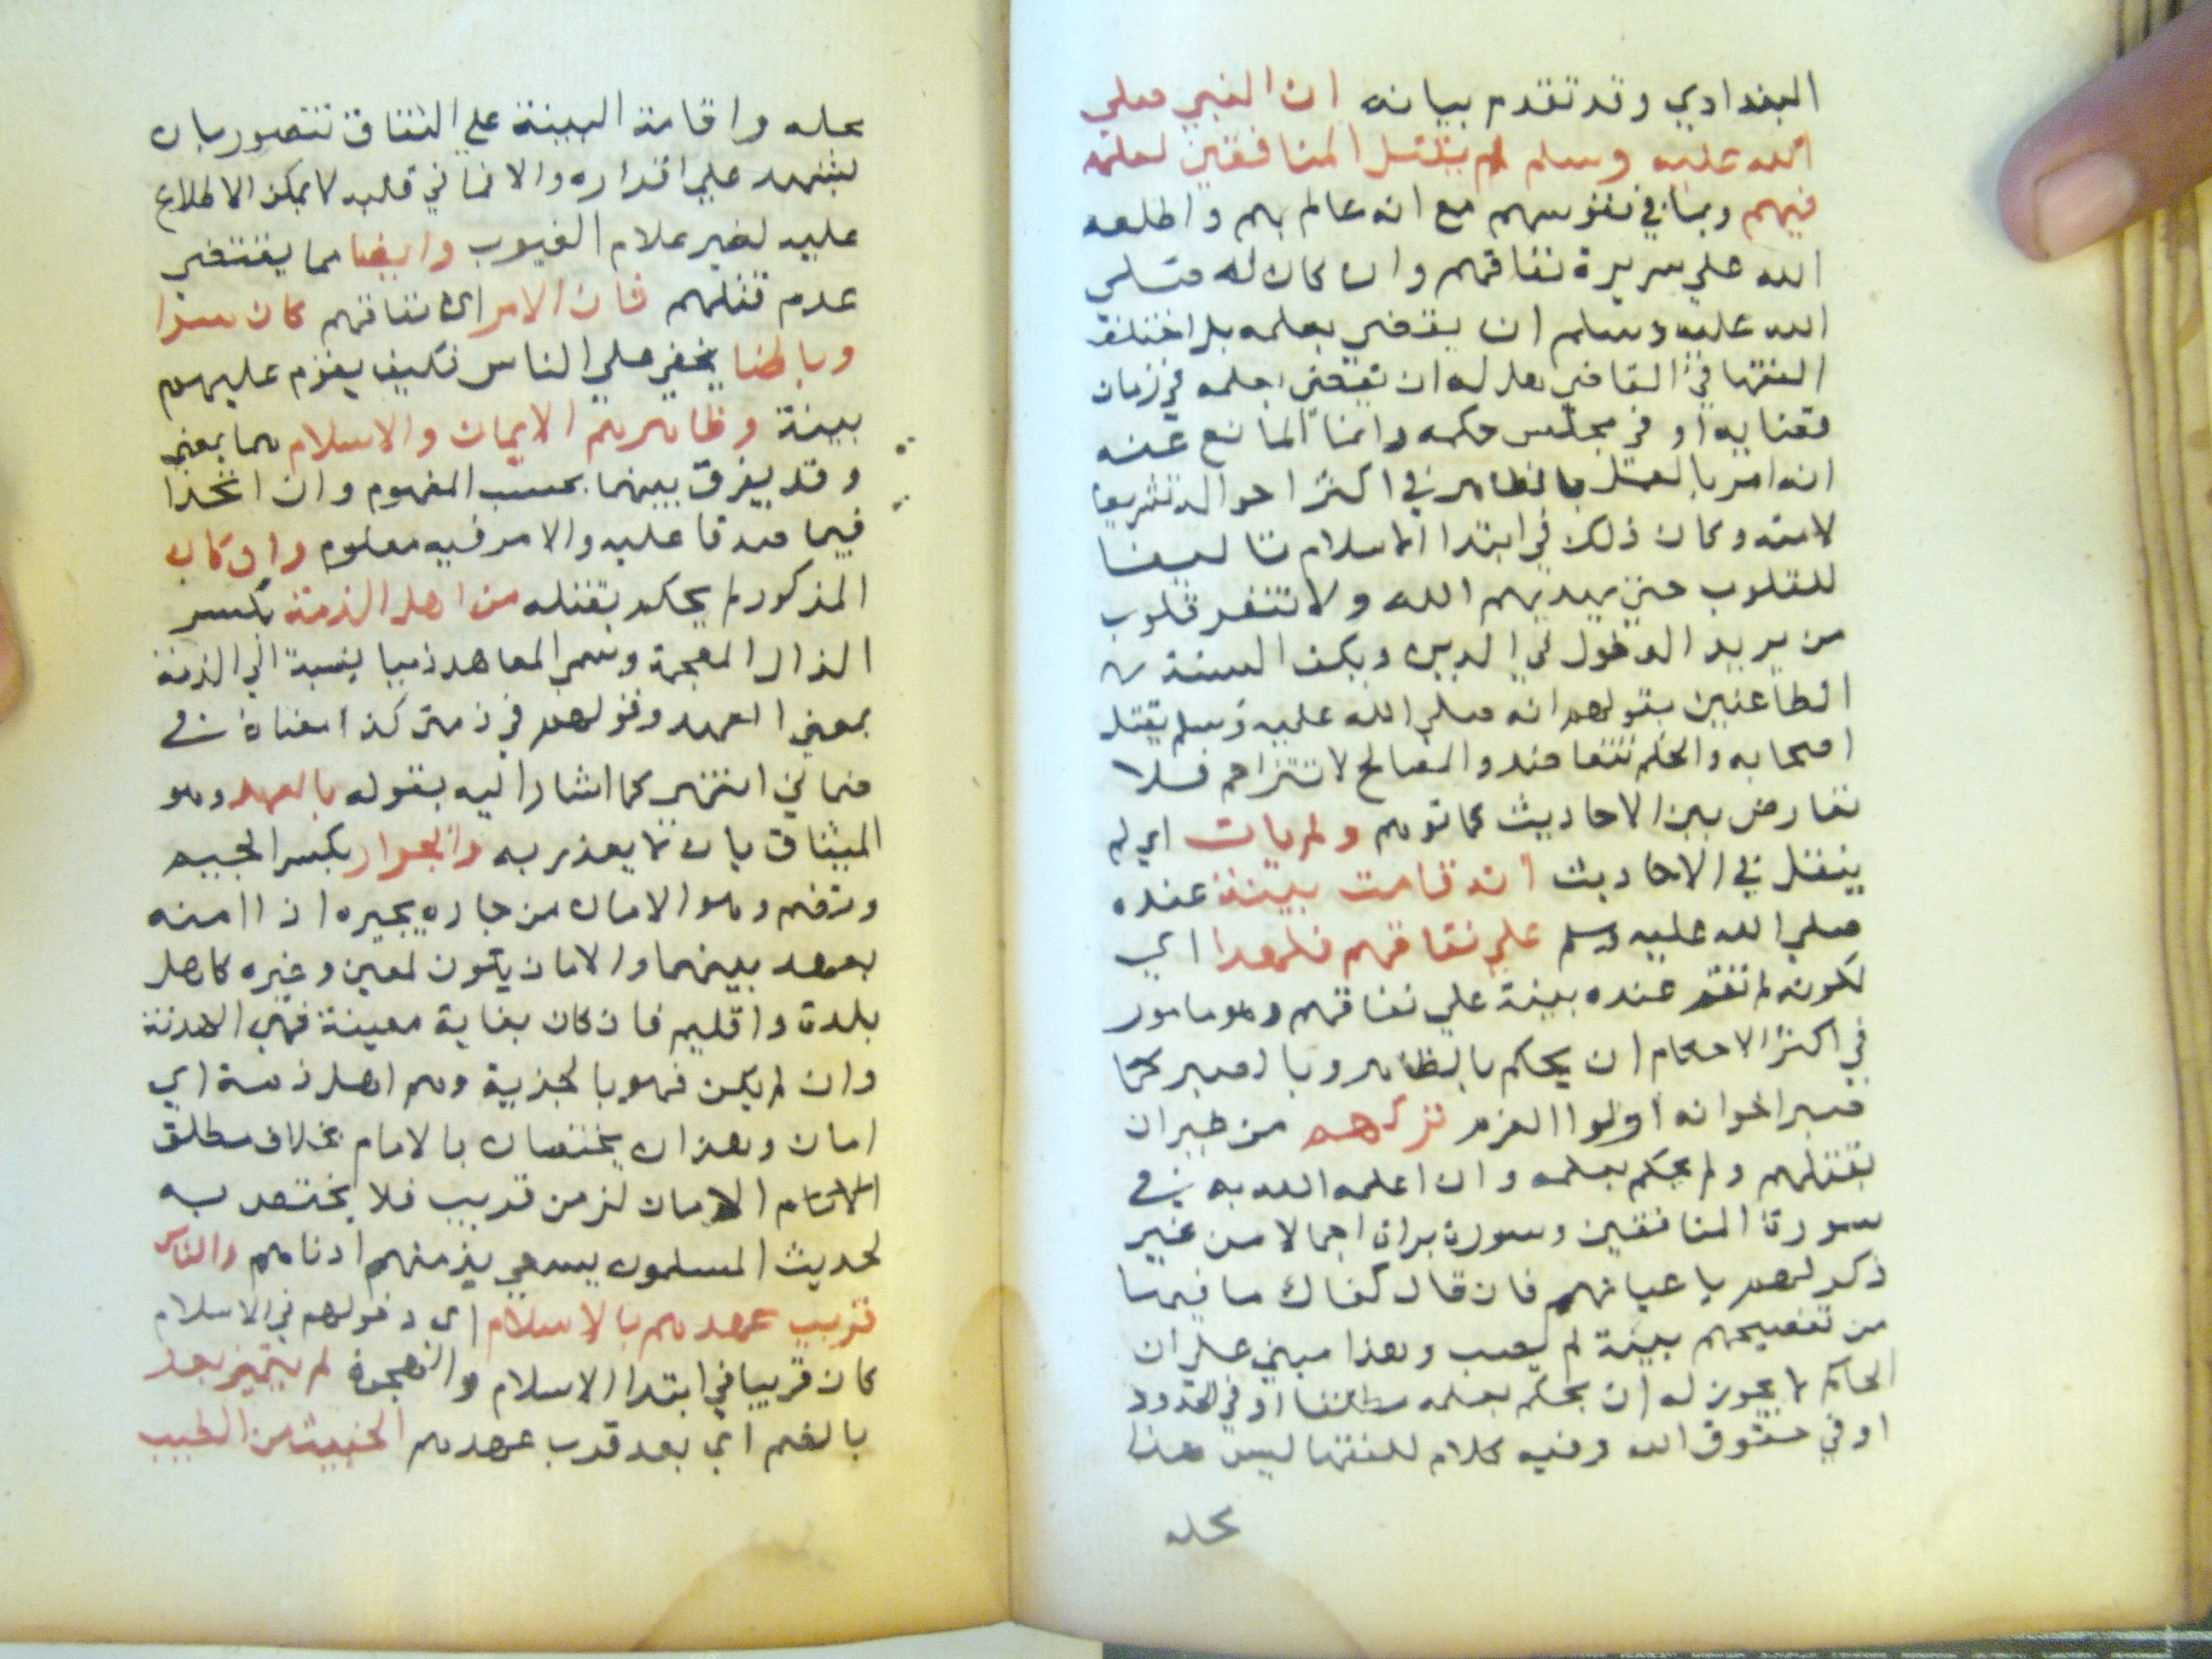 البغدادي وقد تقدم بيانه ان النبي صلي
الله عليه وسلم لم يقتل المنافقين لعلمه
فيهم وبما في نفوسهم مع انه عالم بهم واطلعه
الله علي سريرة نفاقهم وان كان له صلي
الله عليه وسلم ان يقضي بعلمه بل اختلف
الفقها في القاضي هل له ان يقضي بعلمه في زمان
قضايه او في مجلس حكمه وانما المانع عنه
انه امر بالعمل بالظاهر في اكثر احواله تشريعا
لامته وكان ذلك في ابتدا الاسلام تاليفا
للقلوب حتي يهديهم الله ولا تنفر قلوب
من يريد الدخول في الدين ويكف السنة
الطاعنين بقولهم انه صلي الله عليه وسلم يقتل
اصحابه والحكم تتعاضد والمصالح لا تتزاحم فلا
تعارض بين الاحاديث كما توهم ولم يات اي لم
ينقل في الاحاديث انه قامت بينة عنده
صلي الله عليه وسلم علي نفاقهم فلهذا اي
لكونه لم تقم عنده بينة علي نفاقهم وهو مامور
في اكثر الاحكام ان يحكم بالظاهر وبالصبر كما
صبر اخوانه اولوا العزم تركهم من غير ان
يقتلهم ولم يحكم بعلمه وان اعلمه الله به في
سورة المنافقين وسورة براة اجمالا من غير
ذكر لهم باعيانهم فان قال كفاك ما فيها
من تفضيحهم بينة لم يصب وهذا مبني علي ان
الحاكم لا يجوز له ان يحكم بعلمه مطلقا او في الحدود
او في حقوق الله وفيه كلام للفقها ليس هذا
محله
محله واقامة البينة علي النفاق تتصور بان
يشهد علي اقراره والا فما في قلبه لا يمكن الاطلاع
عليه لغير علام الغيوب وايضا مما يقتضي
عدم قتلهم فان الامر اي نفاقهم كان سرا
وباطنا يخفي علي الناس فكيف يقوم عليهم
بينة وظاهرهم الايمان والاسلام هما بمعني
وقد يفرق بينهما بحسب المفهوم وان اتحدا
فيما صدقا عليه والامر فيه معلوم وان كان
المذكور لم يحكم بقتله من اهل الذمة بكسر
الذال المعجمة وسمي المعاهد ذميا نسبة الي الذمة
بمعني العهد وقولهم في ذمتي كذا معناه في
ضماني انتهي كما اشار اليه بقوله بالعهد وهو
الميثاق بان لا يغدر به والجوار بكسر الجيم
وتضم وهو الامان من جاره يجيره اذا امنه
بعهد بينهما والامان يكون لمعين وغيره كاهل
بلدة واقليم فان كان بغاية معينة فهي الهدنة
وان لم يكن فهو بالجزية وهم اهل ذمة اي
امان وهذان يختصان بالامام بخلاف مطلق
الامان لزمن قريب فلا يختص به
لحديث المسلمون يسعي بذمتهم ادناهم والناس
قريب عهدهم بالاسلام اي دخولهم في الاسلام
كان قريبا في ابتدا الاسلام والهجرة لم يتميز بعد
بالضم اي بعد قرب عهدهم الخبيث من الطيب